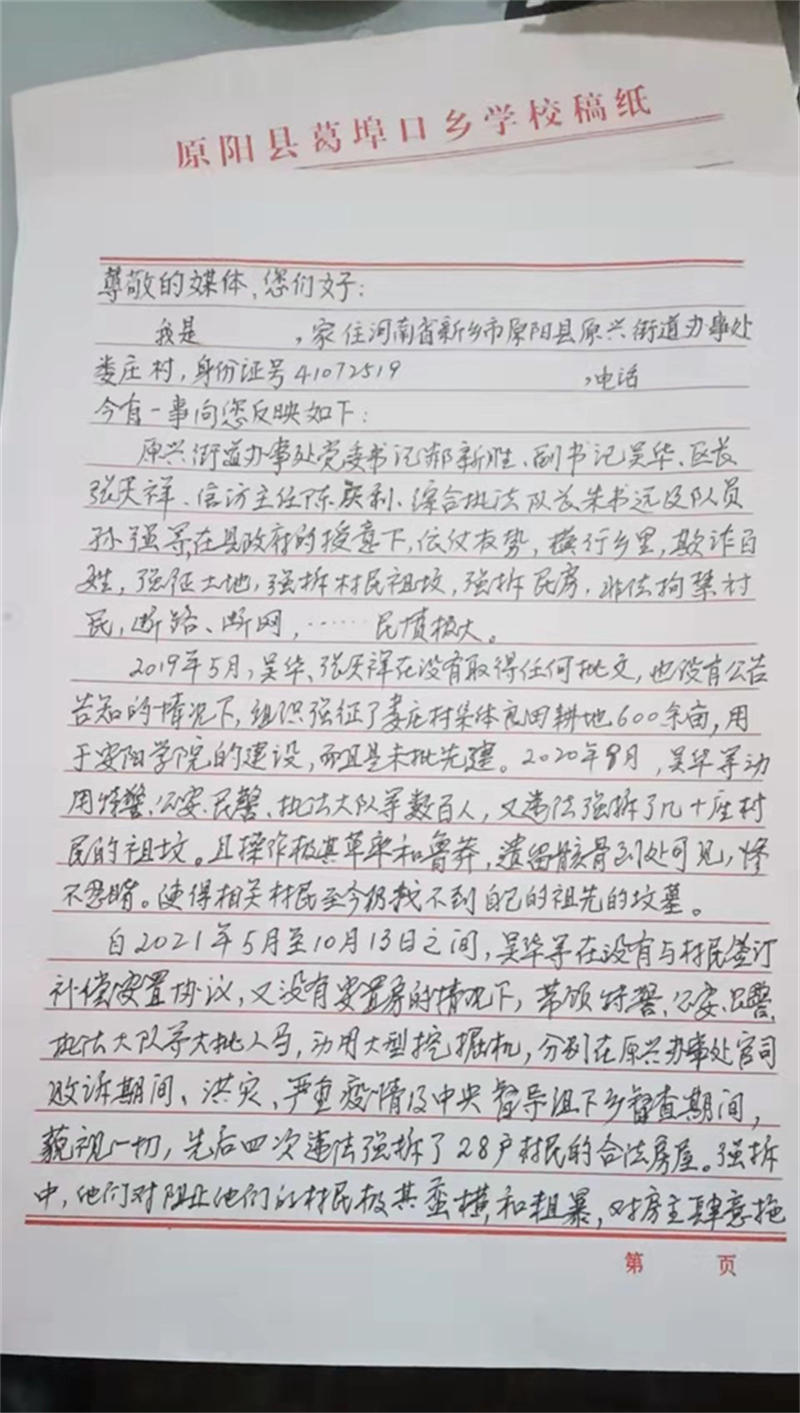 原阳县葛埠口乡学校稿纸
尊敬的媒体、您们好：
我是 ，家住河南省新乡市原阳县原兴街道办事处
娄庄村，身份证号41072519 ，电话
今有一事向您反映如下：
原兴街道办事处党委书记郝新胜、副书记吴华、区长
张天祥、信访主任陈庆利、综合执法队长朱书远及队员
孙强等，在县政府的授意下，依仗权势，横行乡里，欺诈百
姓，强征土地，强拆村民祖坟，强拆民房，非法拘禁村
民，断路、断网，……民愤极大。
2019年5月，吴华、张天祥在没有取得任何批文，也没有公告
告知的情况下，组织强征了娄庄村集体良田耕地600余亩，用
于安阳学院的建设，而且是未批先建。2020年9月，吴华等动
用特警、公安、民警、执法大队等数百人，又违法强拆了几十座村
民的祖坟。且操作极其草率和鲁莽，遗留骸骨到处可见，惨
不忍睹。使得相关村民至今仍找不到自己的祖先的坟墓。
自2021年5月至10月13日之间，吴华等在没有与村民签订
补偿安置协议，又没有安置房的情况下，带领特警、公安、民警、
执法大队等大批人马，动用大型挖掘机，分别在原兴办事处官司
败诉期间、洪灾、严重疫情及中央督导组下乡督查期间，
藐视一切，先后四次违法强拆了28户村民的合法房屋。强拆
中，他们对阻止他们的村民极其蛮横和粗暴，对房主肆意拖
第 页